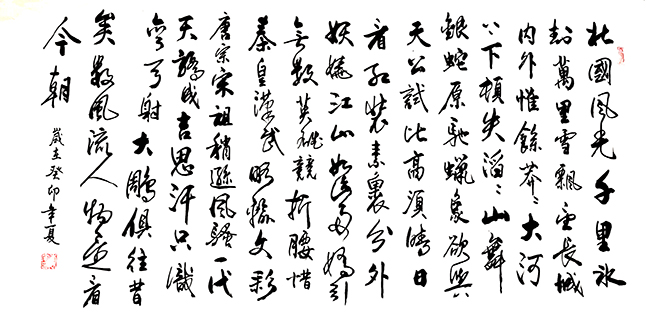 北國風光千里冰
封萬里雪飄望長城
内外惟餘莽〻大河
上下頓失滔〻山舞
銀蛇原馳蠟象欲與
天公試比高須晴日
看紅裝素裹分外
妖嬈江山如此多嬌引
無數英雄競折腰惜
秦皇漢武略輸文彩
唐宗宋祖稍遜風騷一代
天驕成吉思汗只識
彎弓射大鵰俱往昔
矣數風流人物還看
今朝
歲在癸卯年夏